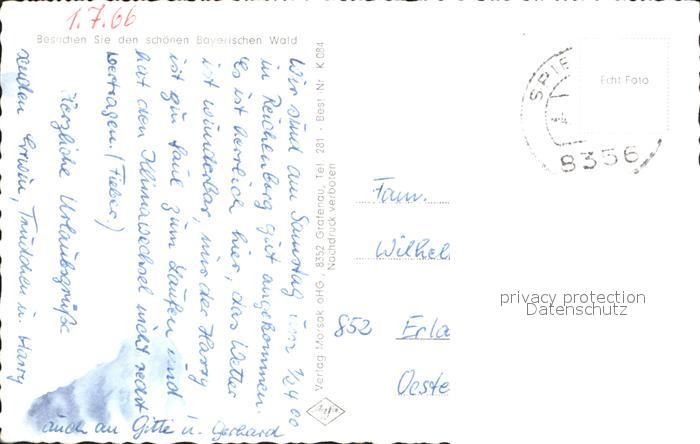 1.7.66
Besuchen Sie den schönen Bayerischen Wald
Wir sind am Samstag um
in Reichenberg gut angekommen.
Es ist herrlich hier, das Wetter
ist wunderbar, nur der Harry
ist zu faul zum Laufen und
hat den Klimawechsel nicht recht
vertragen. (Fieber.)
Herzliche Urlaubsgrüße
senden Erwin, Trudchen u. Harry
auch an Gitte u. Gerhard
Verlag Morsak oHG., 8352 Grafenau, Tel. 281 - Best Nr. K 084
Nachdruck verboten
SPIE
8356
Echt Foto
Fam.
Wilhel
852 Erla
Oeste
privacy protection
Datenschutz